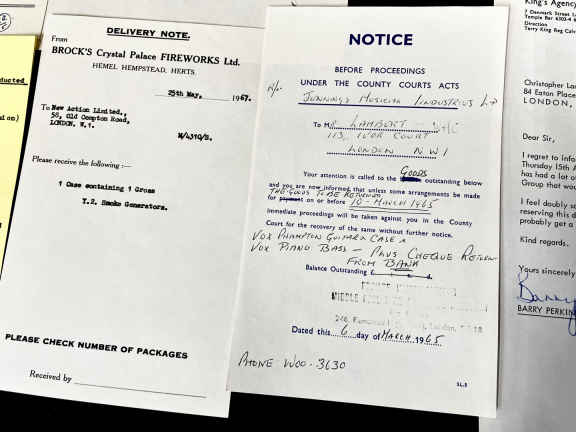 DELIVERY NOTE.
From
BROCK'S Crystal Palace FIREWORKS Ltd.
HEMEL HEMPSTEAD, HERTS.
25th May, 1967.
To New Action Limited.,
58, Old Compton Road,
LONDON. W.1.
N/4310/S.
Please receive the following :—
1 Case containing 1 Gross
T.2. Smoke Generators.
PLEASE CHECK NUMBER OF PACKAGES
Received by
NOTICE
BEFORE PROCEEDINGS
UNDER THE COUNTY COURTS ACTS
JENNINGS MUSICAL INDUSTRIES LTD
To MR LAMBERT
113, IVOR COURT
LONDON NW1
Your attention is called to the GOODS outstanding below
and you are now informed that unless some arrangements be made
THE GOODS TO BE RETURNED
for on or before 10 - MARCH 1965
immediate proceedings will be taken against you in the County
Court for the recovery of the same without further notice.
VOX PHAMTON GUITAR & CASE &
VOX PIANO BASS - PLUS CHEQUE RETURN
FROM BANK
Balance Outstanding £ s. d.
Dated this 6 day of MARCH 1965
PHONE WOO-3630
SL.5
King's Agency
7 Denmark Street
Temple Bar
Direction
Terry King
Christopher
84 Eaton Place
LONDON,
Dear Sir,
I regret to
Thursday 15th
has had a lot
Group that
I feel doubly
reserving this
probably get a
Kind regards.
Yours sincerely
Barry
BARRY PERKIN